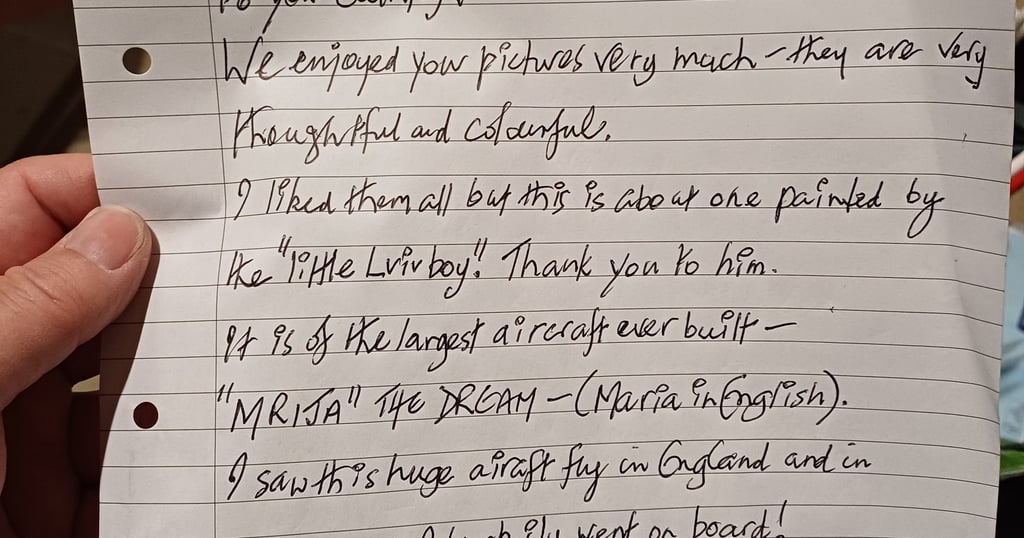 We enjoyed your pictures very much - they are very
thoughtful and colourful.
I liked them all but this is about one painted by
the "little Lviv boy". Thank you to him.
It is of the largest aircraft ever built -
"MRIJA" THE DREAM - (Maria in English).
I saw this huge airaft fly in England and in
went on board!